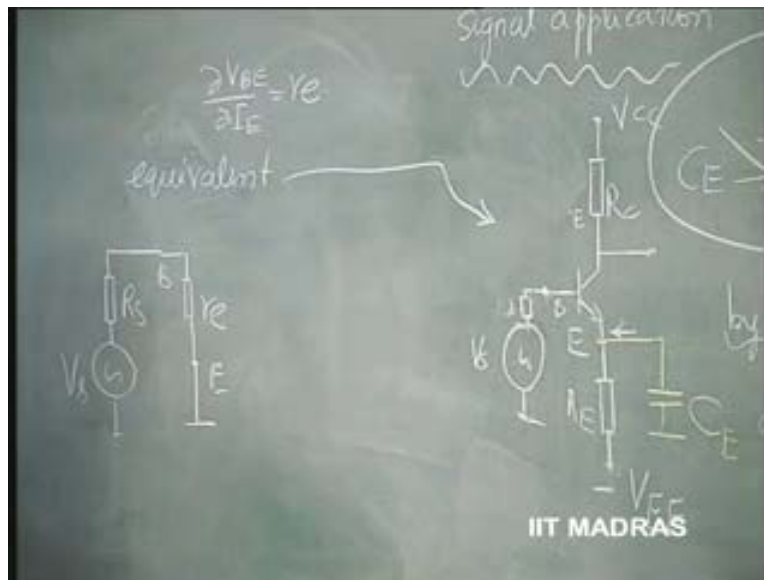 Signal application
∂VBE/∂IE = re
equivalent
VCC
RC
CE
E
B
RS
re
VS
E
B
VS
E
RE
CE
by
VEE
IIT MADRAS